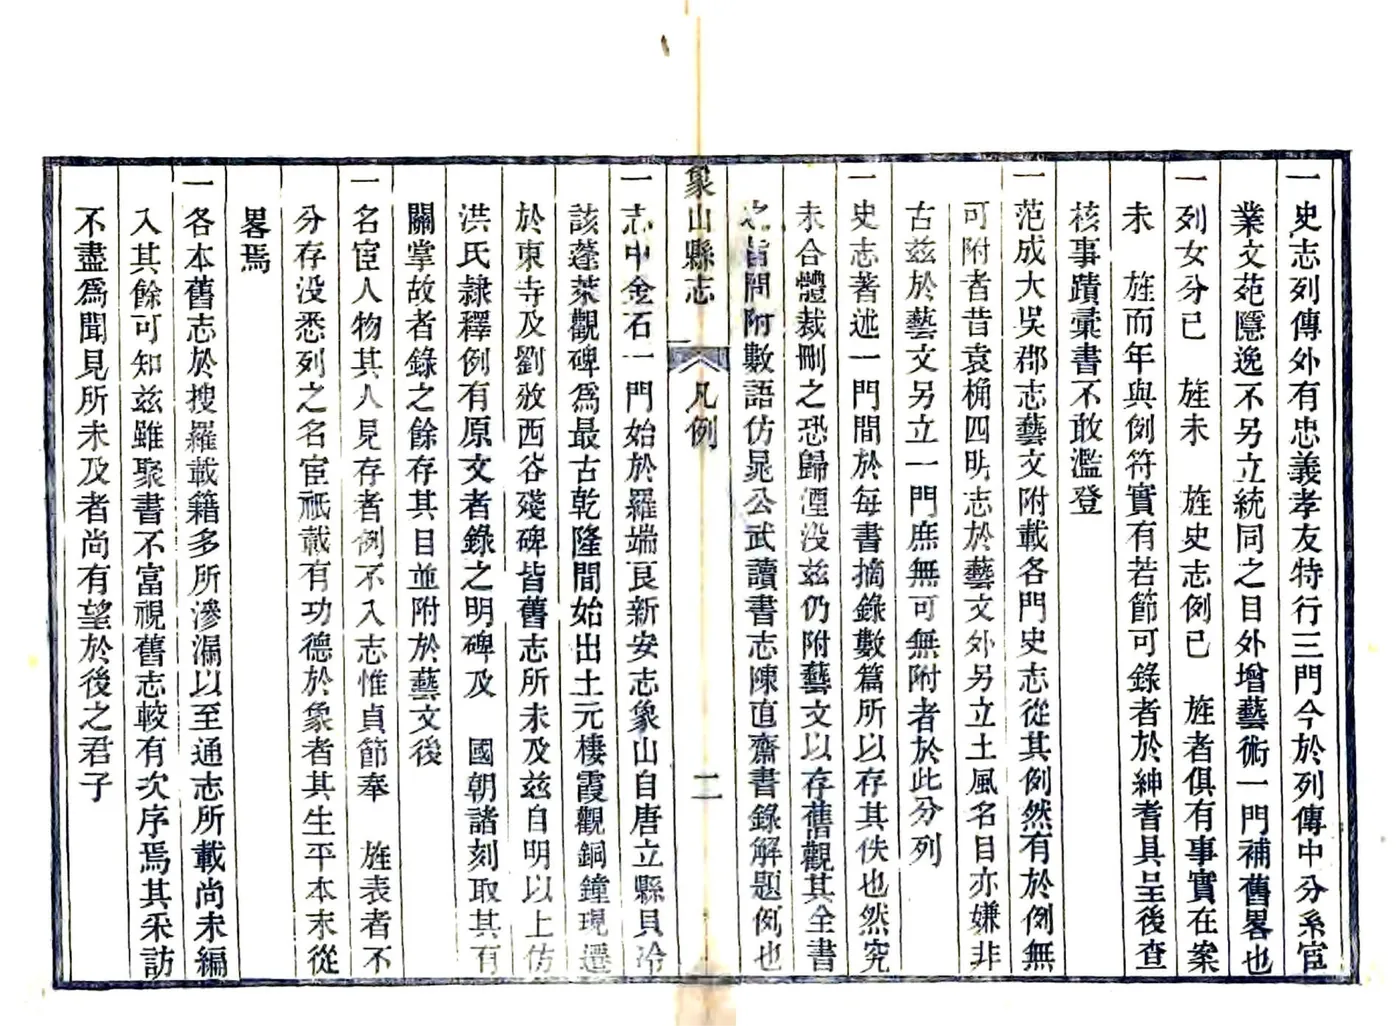 一史志列傳外有忠義孝友特行三門今於列傳中分系宦
業文苑隱逸不另立統同之目外增藝術一門補舊畧也
一列女分已　旌未　旌史志例已　旌者俱有事實在案
未　旌而年與例符實有若節可錄者於紳耆具呈後查
核事蹟彙書不敢濫登
一范成大吳郡志藝文附載各門史志從其例然有於例無
可附者昔袁桷四明志於藝文外另立土風名目亦嫌非
古兹於藝文另立一門庶無可無附者於此分列
一史志著述一門間於每書摘錄數篇所以存其佚也然究
未合體裁刪之恐歸湮没兹仍附藝文以存舊觀其全書
之旨間附數語仿晁公武讀書志陳直齋書錄解題例也
象山縣志
凡例
二
一志中金石一門始於羅端良新安志象山自唐立縣貝冷
該蓬萊觀碑爲最古乾隆間始出土元棲霞觀銅鐘現遷
於東寺及劉敚西谷殘碑皆舊志所未及兹自明以上仿
洪氏隸釋例有原文者錄之明碑及　國朝諸刻取其有
關掌故者錄之餘存其目並附於藝文後
一名宦人物其人見存者例不入志惟貞節奉　旌表者不
分存没悉列之名宦祇載有功德於象者其生平本末從
畧焉
一各本舊志於搜羅載籍多所滲漏以至通志所載尚未編
入其餘可知兹雖聚書不富視舊志較有次序焉其采訪
不盡爲聞見所未及者尚有望於後之君子